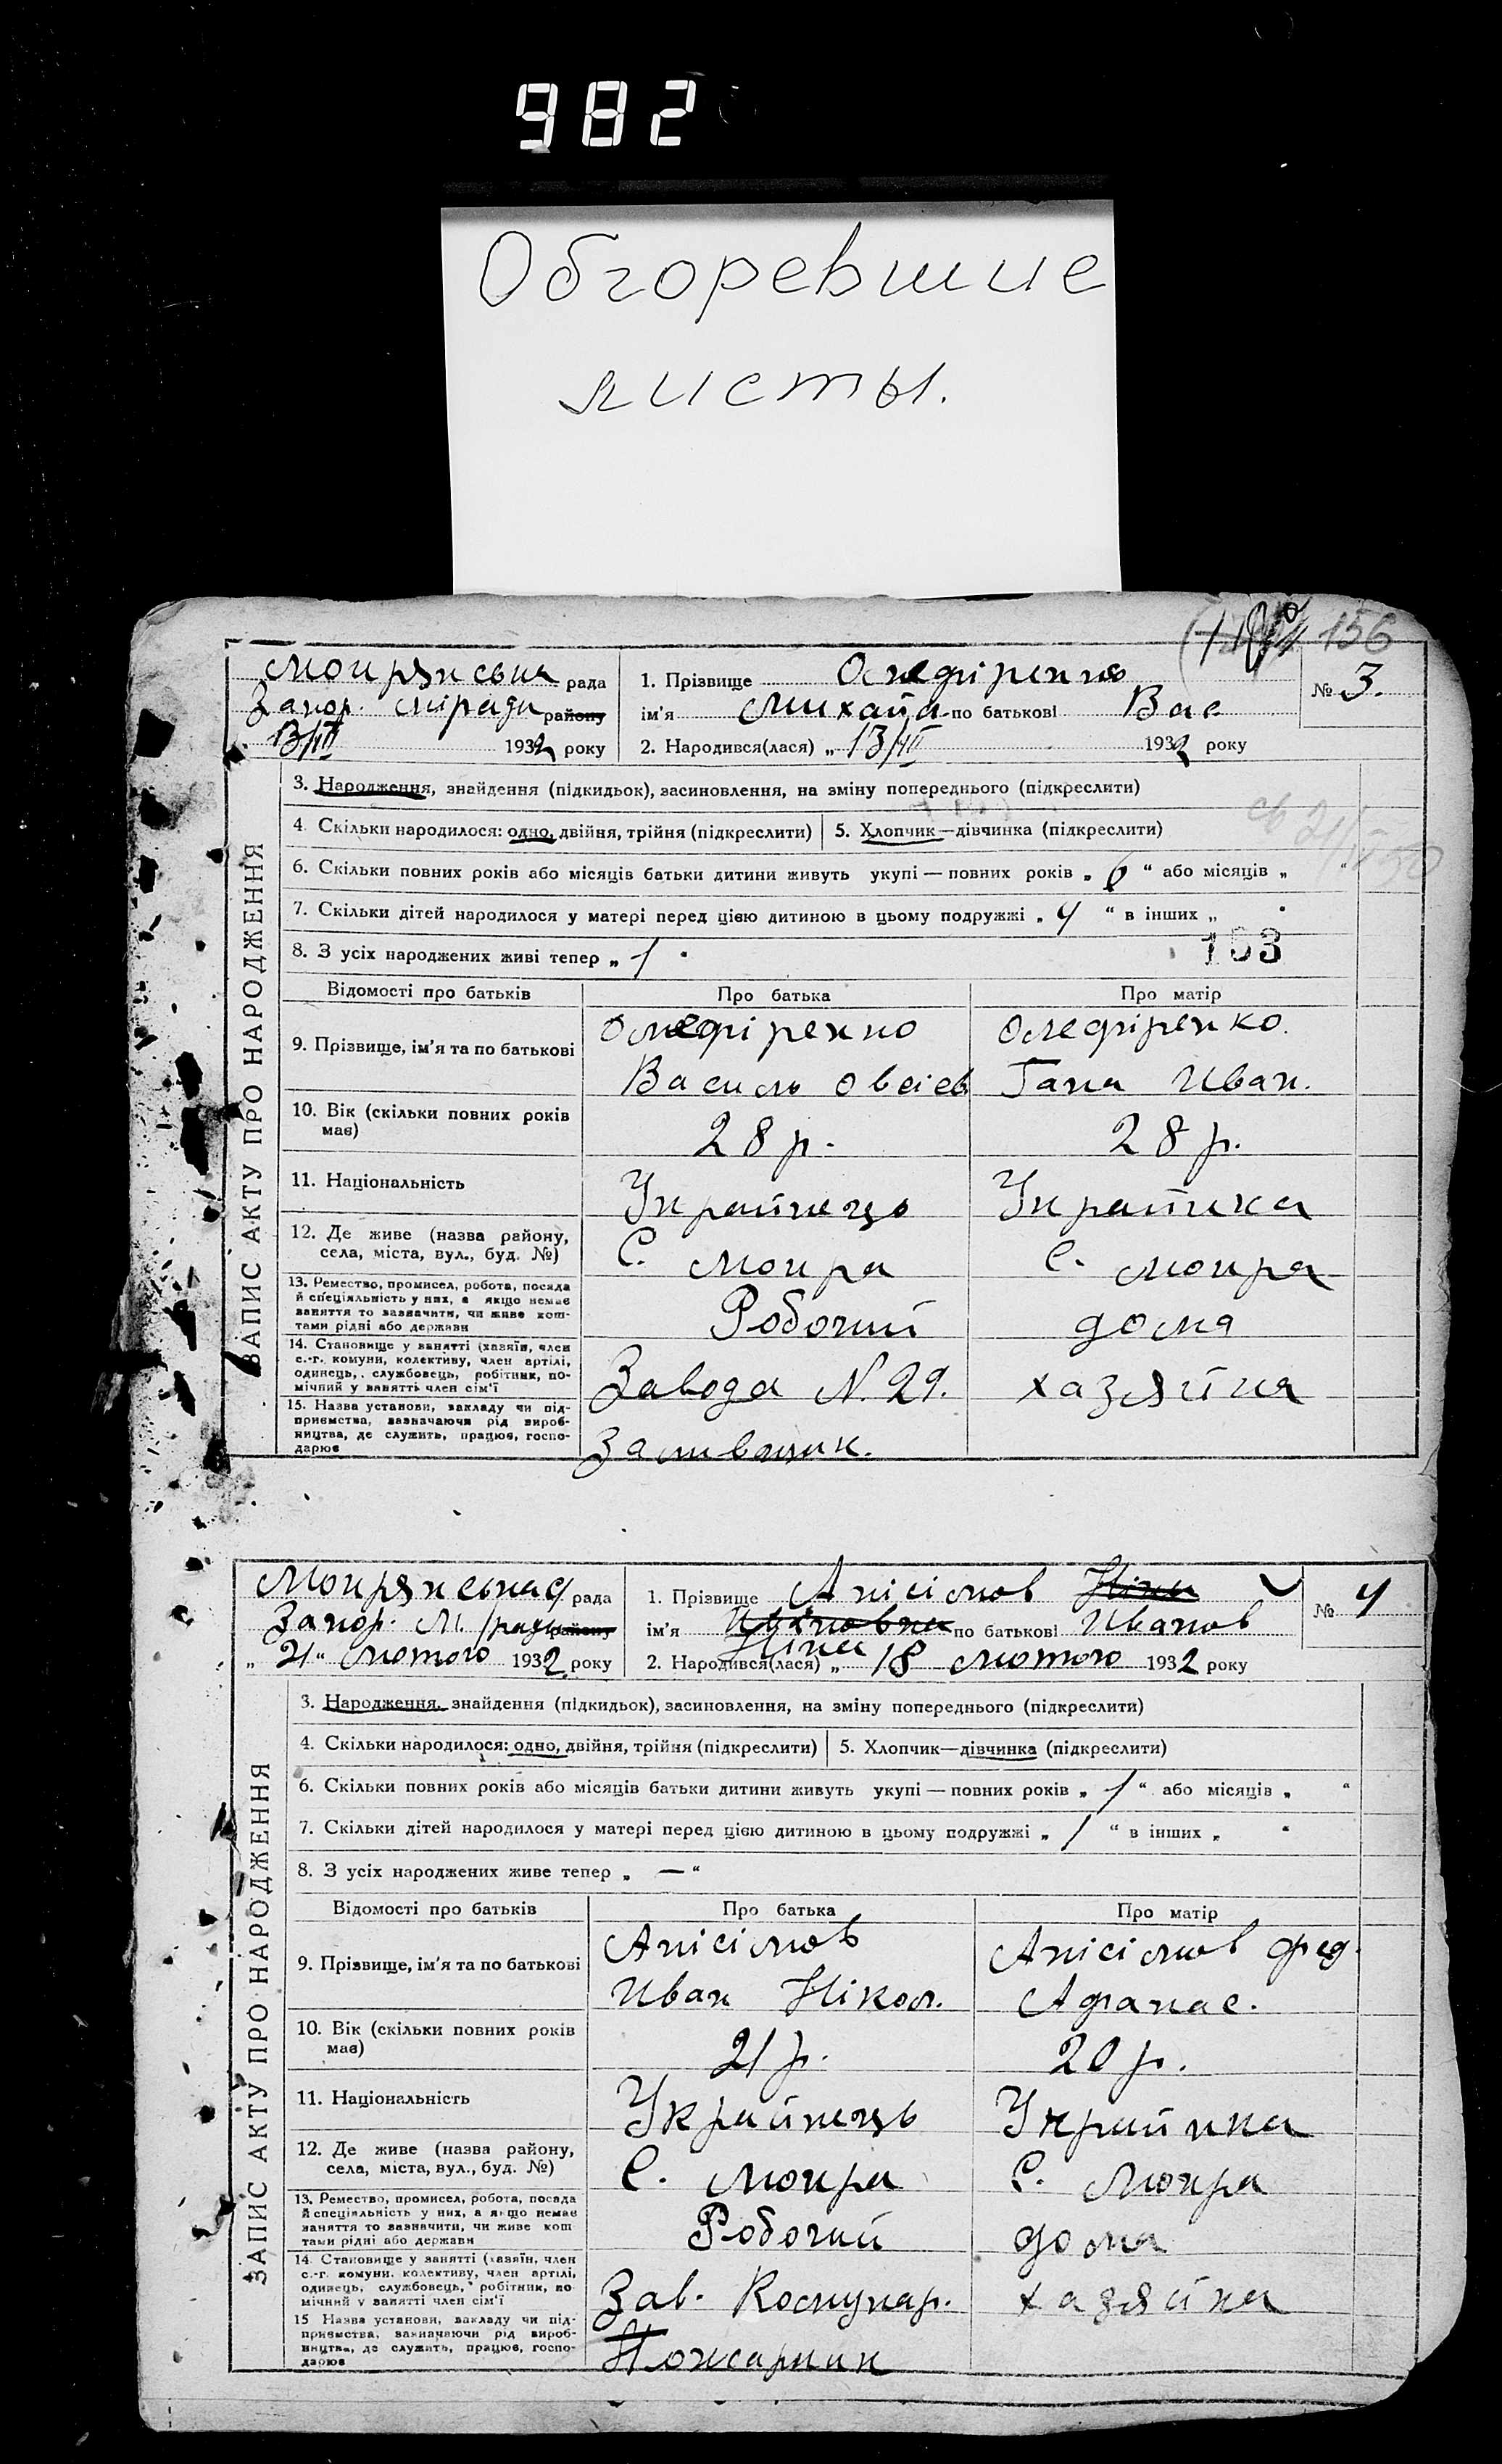 982
Обгоревшие
листы.
156
Мокрянська рада
Запор. міради району
13/III 1932 року
1. Прізвище Олефіренко
ім'я Михайл по батькові Вас
2. Народився(лася) „ 13/III 1932 року
№ 3.
ЗАПИС АКТУ ПРО НАРОДЖЕННЯ
3. Народження, знайдення (підкидьок), засиновлення, на зміну попереднього (підкреслити)
4. Скільки народилося: одно, двійня, трійня (підкреслити)
5. Хлопчик—дівчинка (підкреслити)
6. Скільки повних років або місяців батьки дитини живуть укупі — повних років „ 6 “ або місяців „ “
7. Скільки дітей народилося у матері перед цією дитиною в цьому подружжі „ 4 “ в інших „
8. З усіх народжених живі тепер „ 1 “
153
Відомості про батьків
Про батька
Про матір
9. Прізвище, ім'я та по батькові
Олефіренко
Василь Овсієв
Олефіренко.
Гана Иван.
10. Вік (скільки повних років
має)
28 р.
28 р.
11. Національність
Українець
Українка
12. Де живе (назва району,
села, міста, вул., буд. №)
С. Мокра
С. Мокра
13. Ремество, промисел, робота, посада
й спеціяльність у них, а якщо немає
заняття то зазначити, чи живе кош-
тами рідні або держави
Робочий
дома
14. Становище у занятті (хазяїн, член
с.-г. комуни, колективу, член артілі,
одинець, службовець, робітник, по-
мічний у занятті член сім'ї
Завода N. 29.
хазяйка
15. Назва установи, закладу чи під-
приємства, зазначаючи рід вироб-
ництва, де служить, працює, госпо-
дарює
Заливщик.
Мокрянськая рада
Запор. М. /ради району
„ 21 “ лютого 1932 року
1. Прізвище Анісімов Ніна
ім'я Ивановна Ніна по батькові Иванов
2. Народився(лася) „ 18 лютого 1932 року
№ 4
ЗАПИС АКТУ ПРО НАРОДЖЕННЯ
3. Народження, знайдення (підкидьок), засиновлення, на зміну попереднього (підкреслити)
4. Скільки народилося: одно, двійня, трійня (підкреслити)
5. Хлопчик—дівчинка (підкреслити)
6. Скільки повних років або місяців батьки дитини живуть укупі — повних років „ 1 “ або місяців „ “
7. Скільки дітей народилося у матері перед цією дитиною в цьому подружжі „ 1 “ в інших „ “
8. З усіх народжених живе тепер „ — “
Відомості про батьків
Про батька
Про матір
9. Прізвище, ім'я та по батькові
Анісімов
Иван Нікол.
Анісімов Фед.
Афанас.
10. Вік (скільки повних років
має)
21 р.
20 р.
11. Національність
Українець
Українка
12. Де живе (назва району,
села, міста, вул., буд. №)
С. Мокра
С. Мокра
13. Ремество, промисел, робота, посада
й спеціяльність у них, а якщо немає
заняття то зазначити, чи живе кош
тами рідні або держави
Робочий
дома
14. Становище у занятті (хазяїн, член
с.-г. комуни, колективу, член артілі,
одинець, службовець, робітник, по
мічний у занятті член сім'ї
Зав. Комунар.
хазяйка
15 Назва установи, закладу чи під-
приємства, зазначаючи рід вироб-
ництва, де служить, працює, госпо-
дарює
Пожарник